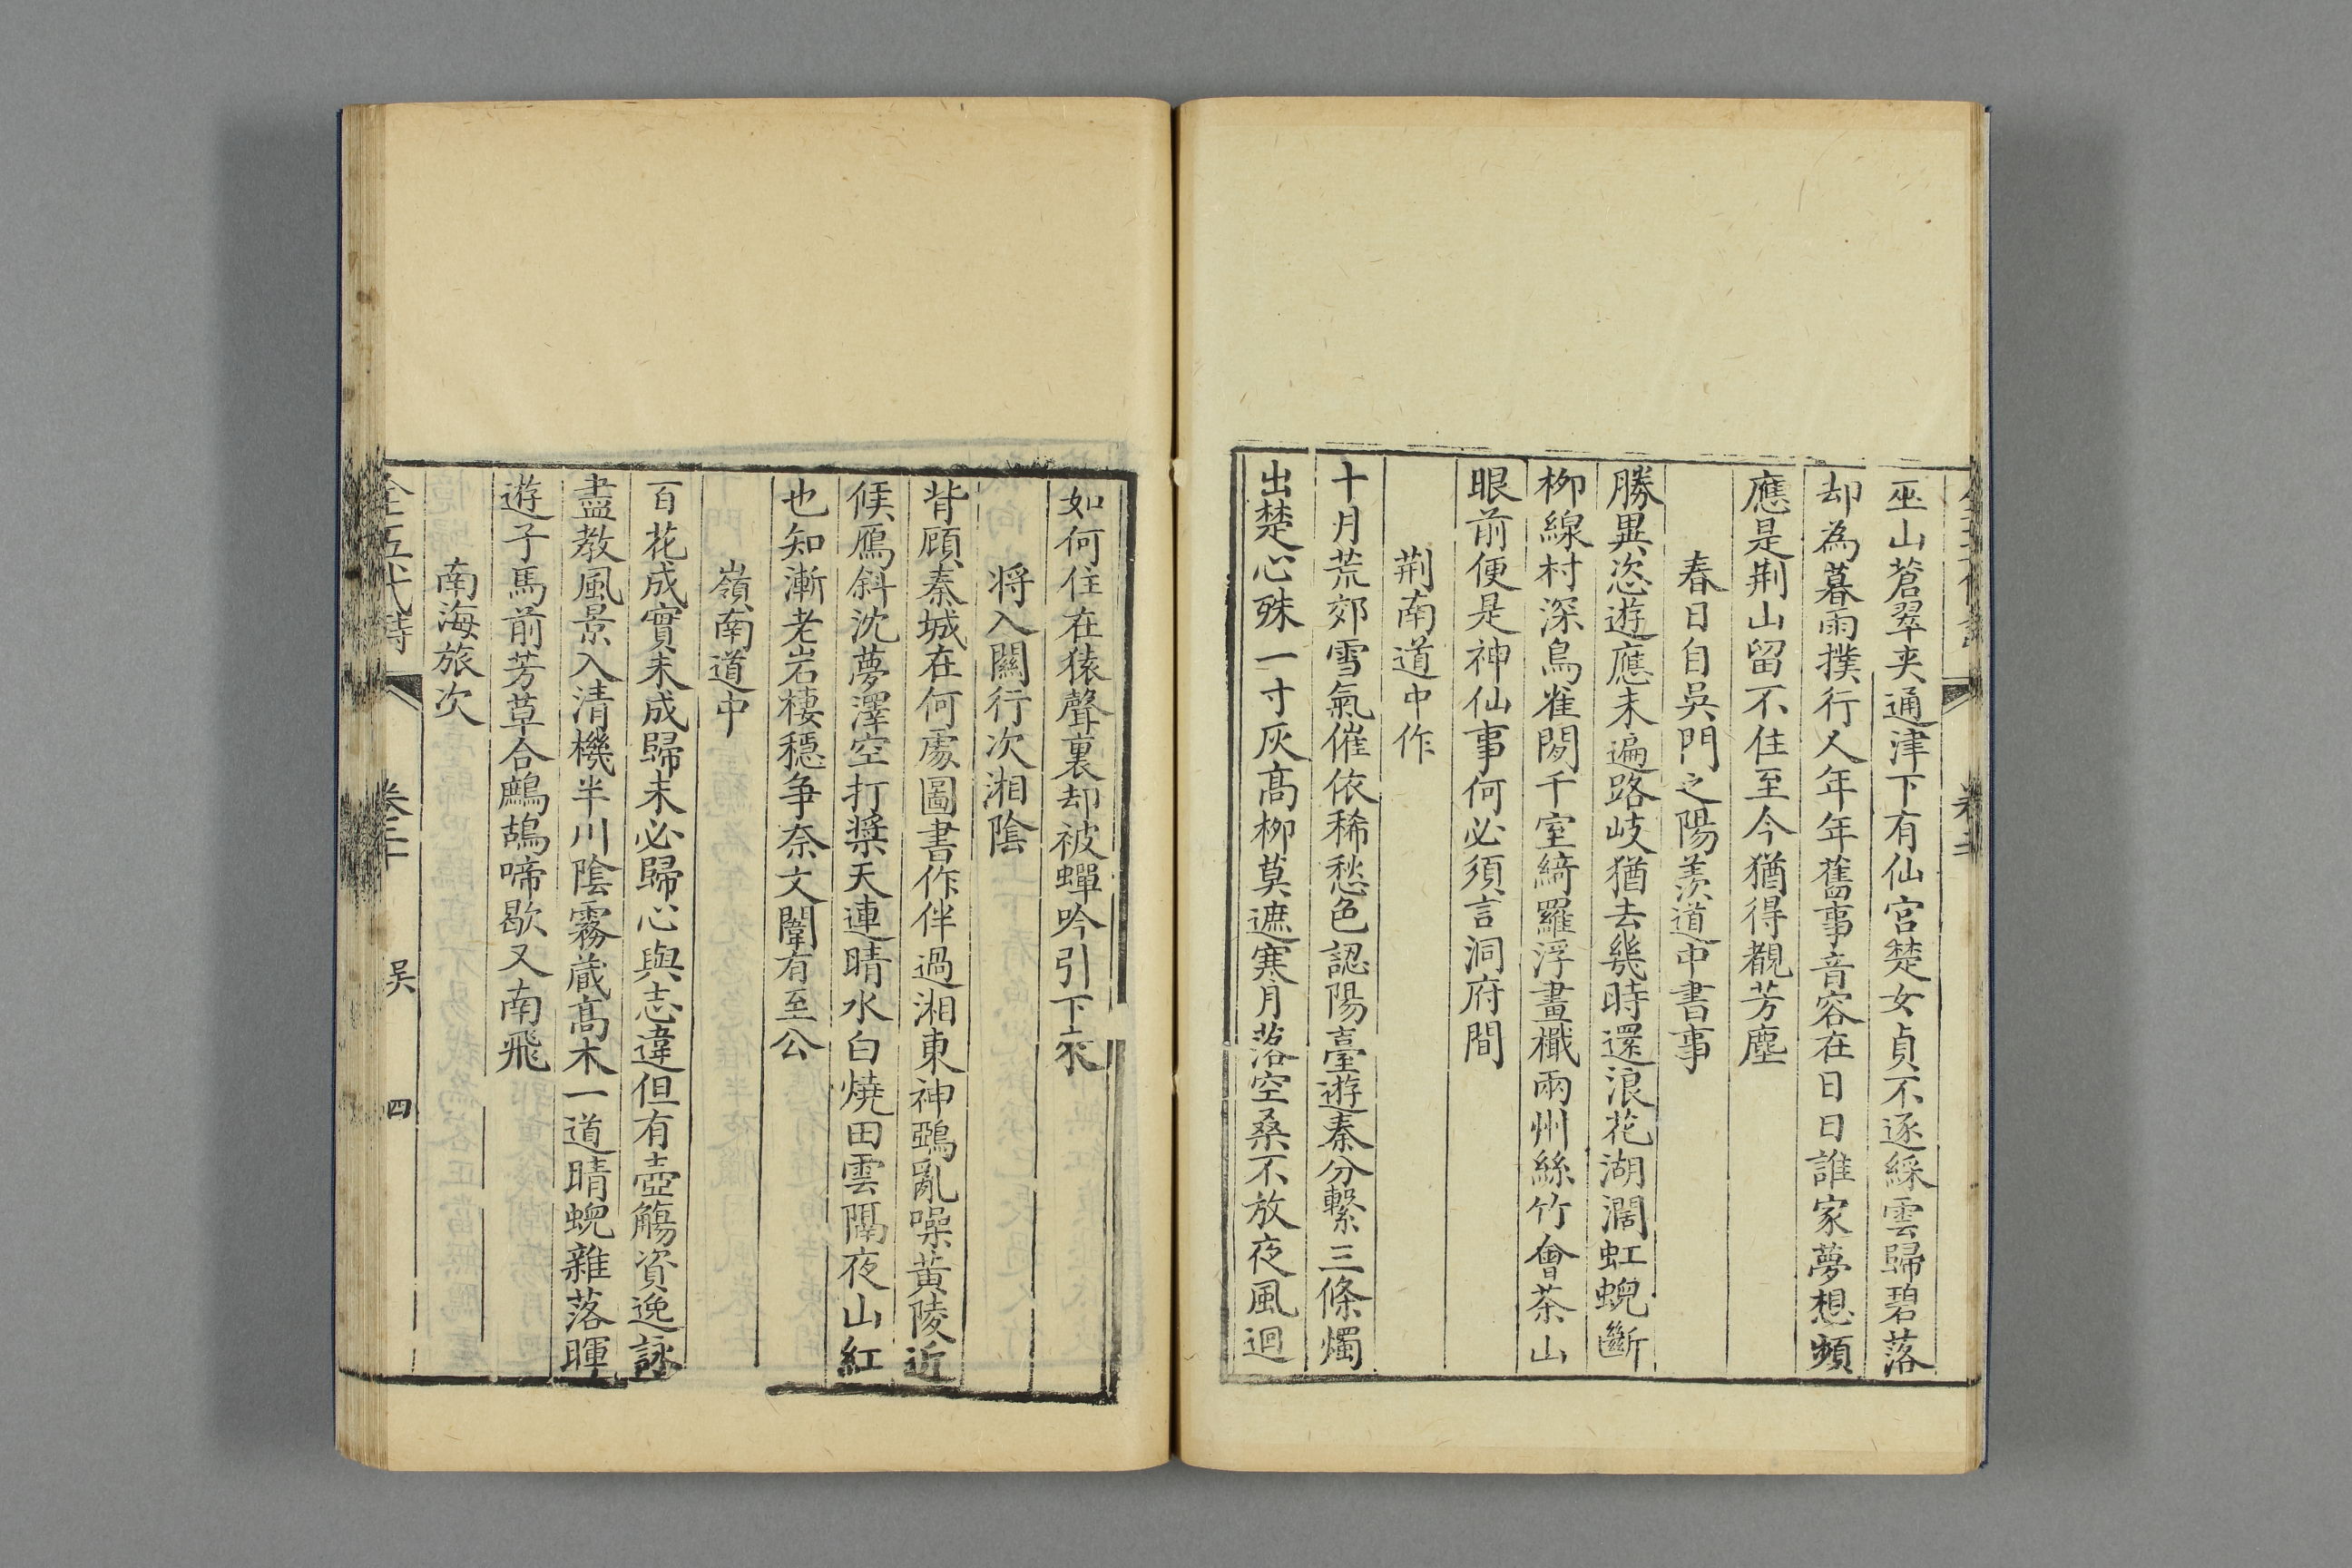 巫山蒼翠夾通津下有仙宮楚女貞不逐綵雲歸碧落
却為暮雨撲行人年年舊事音容在日日誰家夢想頻
應是荆山留不住至今猶得覩芳塵
春日自吳門之陽羨道中書事
勝異恣遊應未遍路岐猶去幾時還浪花湖濶虹蜺斷
柳線村深鳥雀閒千室綺羅浮畫檝兩州絲竹會茶山
眼前便是神仙事何必須言洞府間
荆南道中作
十月荒郊雪氣催依稀愁色認陽臺遊秦分繫三條燭
出楚心殊一寸灰高柳莫遮寒月落空桑不放夜風迴
如何住在猿聲裏却被蟬吟引下來
將入關行次湘陰
背顧秦城在何處圖書作伴過湘東神鵶亂噪黃陵近
候鴈斜沈夢澤空打槳天連晴水白燒田雲隔夜山紅
也知漸老岩棲穩争奈文闈有至公
嶺南道中
百花成實未成歸未必歸心與志違但有壺觴資逸詠
盡教風景入清機半川陰霧藏高木一道晴蜺雜落暉
遊子馬前芳草合鷓鴣啼歇又南飛
南海旅次
全五代詩 卷二十 吴 四